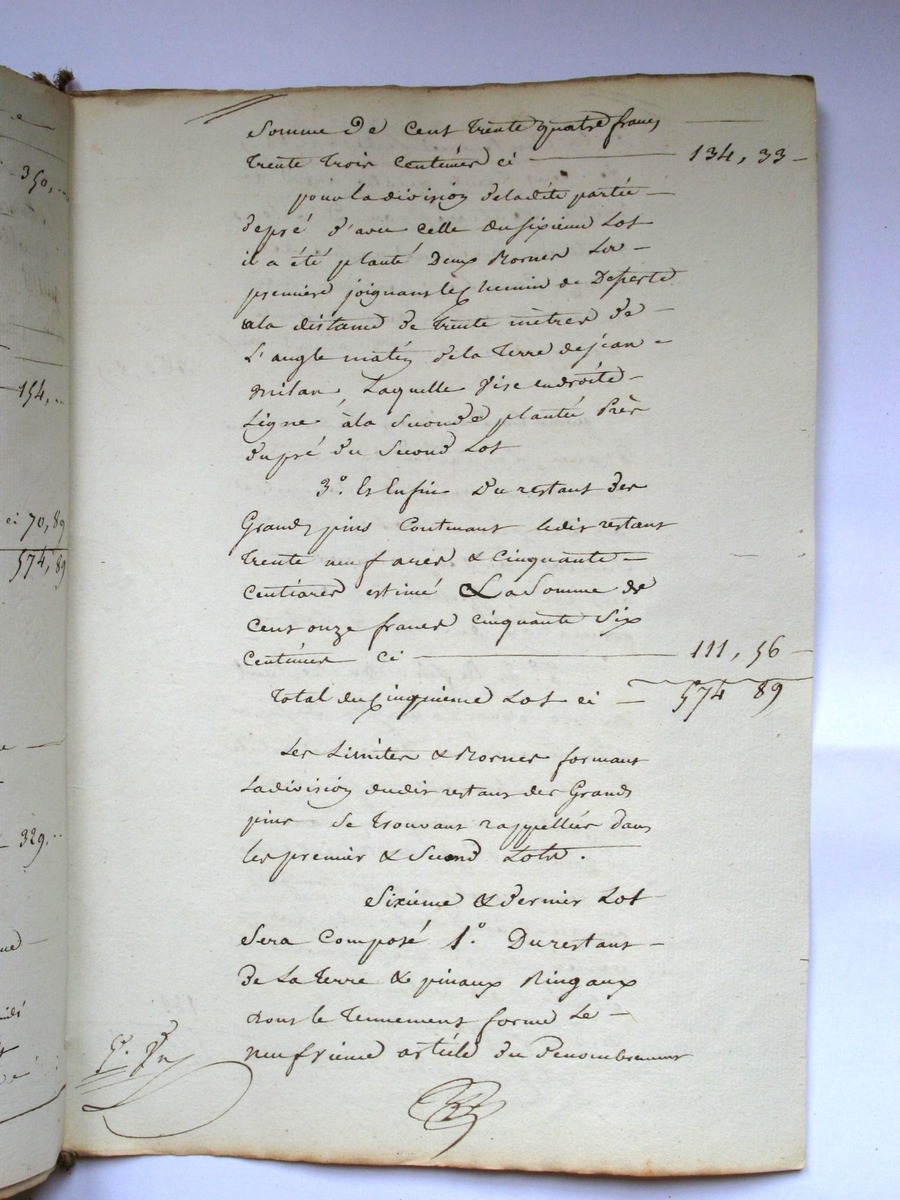 350,..
154,..
ci 70,89
574,89
329,..
Somme de cent trente quatre francs
trente trois centimes ci — 134, 33 –
pour la division de ladite partie –
de pré d'avec celle du sixieme Lot
il a été planté Deux Bornes La –
premiere joignant le chemin de Deserte
a la distance de trente mètres de
L'angle de la terre de jean –
milan, Laquelle vise en droite –
Ligne à la Seconde plantée Près
du pré du Second Lot
3°. Et Enfin Du restant des
Grands pins Contenant ledit restant
trente neuf ares & cinquante –
centiares estimé La Somme de
Cent onze francs cinquante Six
Centimes ci — 111, 56 –
Total du Cinquieme Lot ci – 574 89
Les Limites & Bornes formant
La division dudit restant des Grands
pins Se trouvant rappellées dans
les premier & Second Lots.
Sixieme & Dernier Lot
Sera Composé 1°. Du restant –
de La terre & pinaux Ringaux
dont le tennement forme Le –
neufvieme article du Denombrement